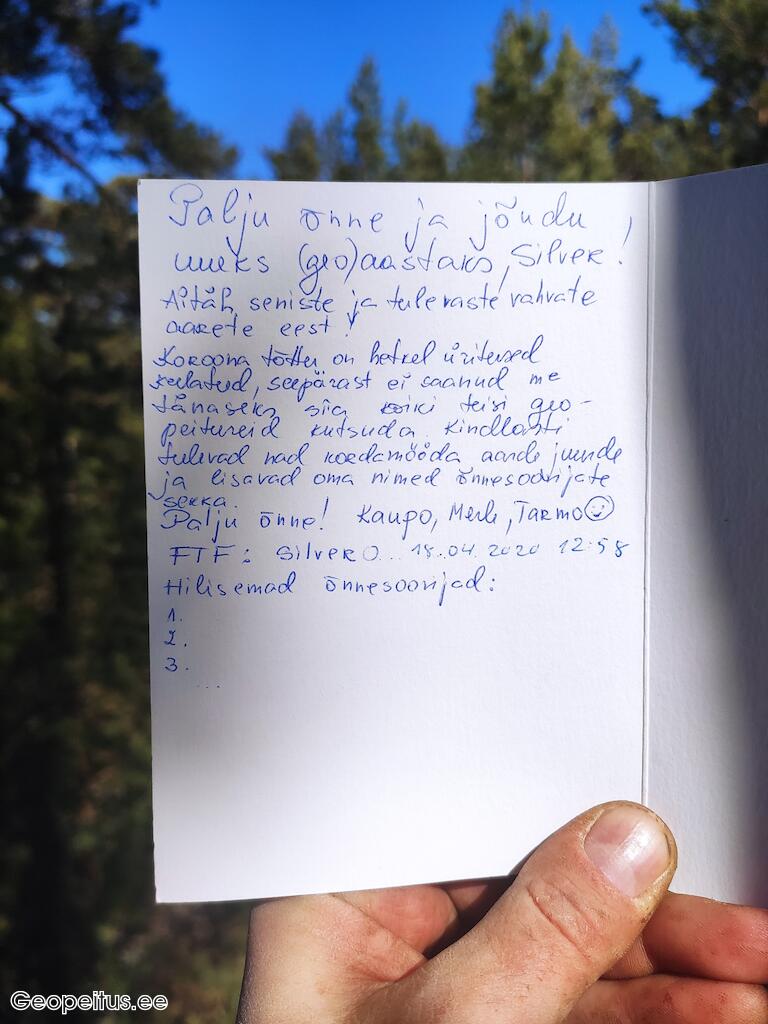 Palju õnne ja jõudu
uueks (geo)aastaks, Silver!
Aitäh seniste ja tulevaste vahvate
aarete eest!
Koroona tõttu on hetkel üritused
keelatud, seepärast ei saanud me
tänaseks siia kõiki teisi geo-
peitureid kutsuda. Kindlasti
tulevad nad kordamööda aarde juurde
ja lisavad oma nimed õnnesoovijate
sekka.
Palju õnne! Kaupo, Merle, Tarmo☺
FTF: SilverO... 18.04.2020 12:58
Hilisemad õnnesoovijad:
1.
2.
3.
...
Geopeitus.ee